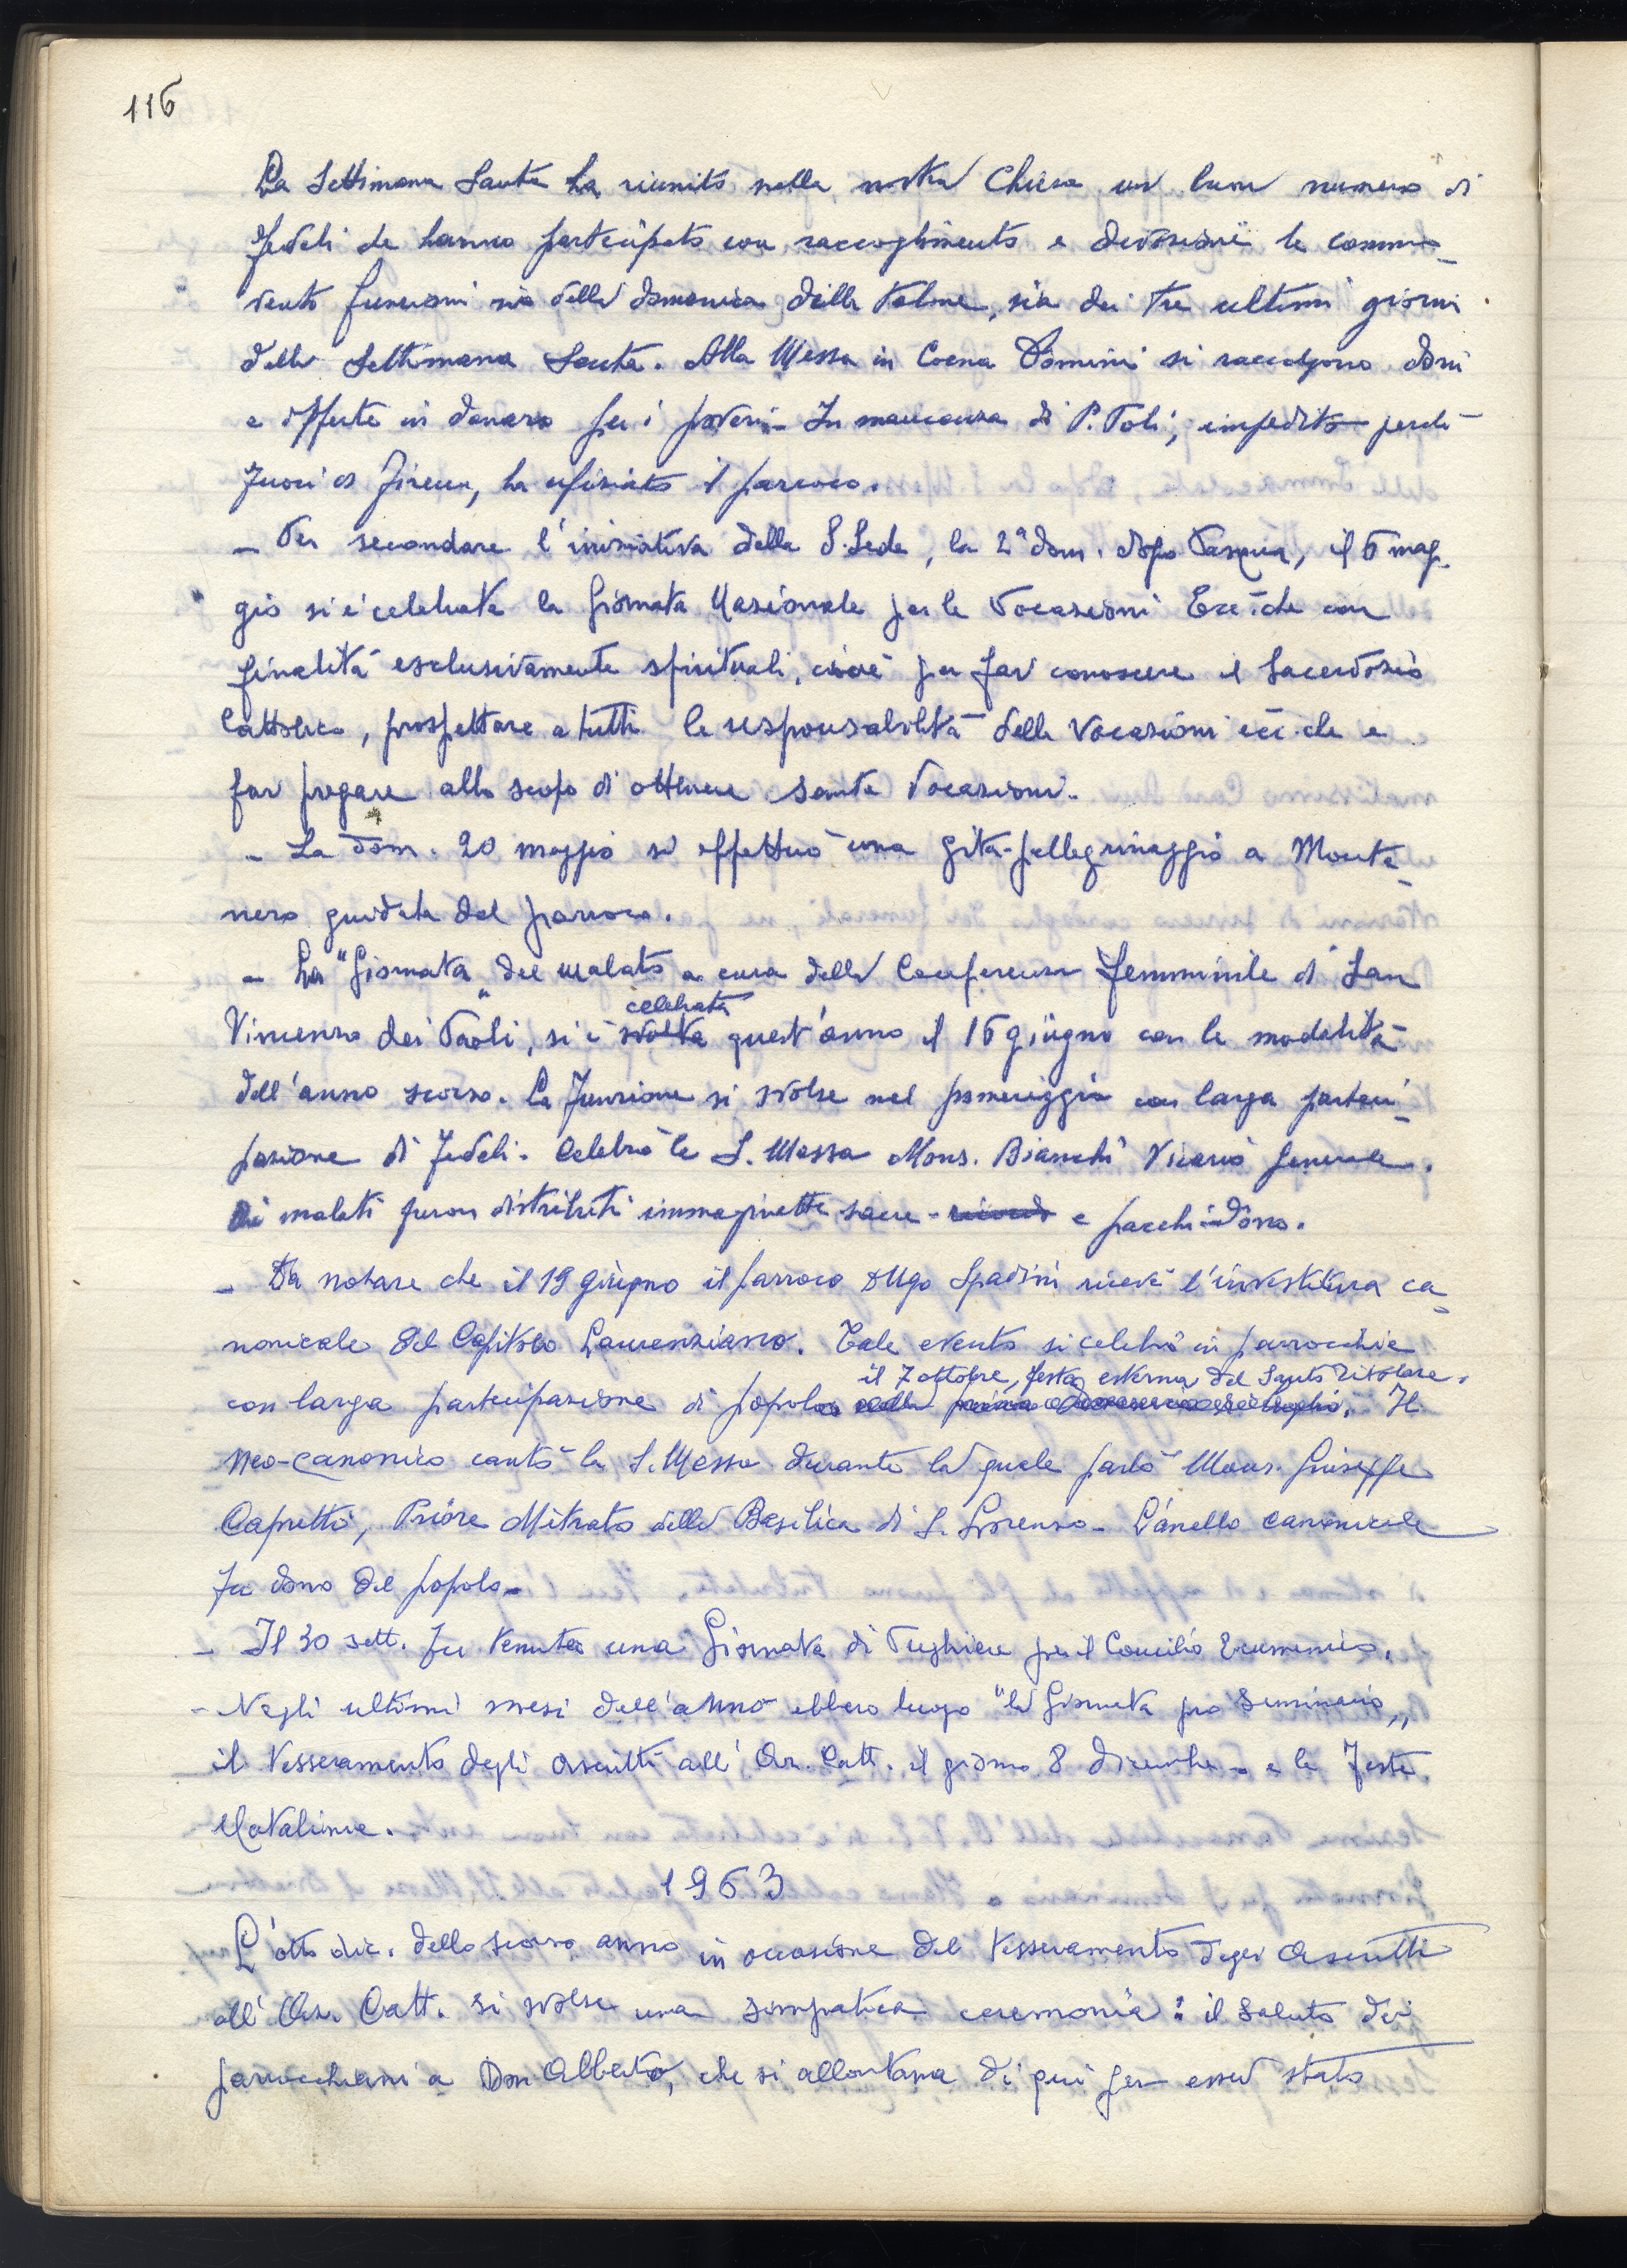 116
La Settimana Santa ha riunito nella nostra Chiesa un buon numero di
fedeli che hanno partecipato con raccoglimento e devozione le commo-
venti funzioni sia della domenica delle Palme, sia dei tre ultimi giorni
della Settimana Santa. Alla Messa in Coena Domini si raccolgono doni
e offerte in danaro per i poveri. In mancanza di P. Poli, impedito perché
fuori di Firenze, ha ufiziato il parroco.
- Per secondare l'iniziativa della S. Sede, la 2ª dom. dopo Pasqua, il 6 mag-
gio si è celebrata la Giornata Nazionale per le Vocazioni Ecc.che con
finalità esclusivamente spirituali, cioè per far conoscere il Sacerdozio
Cattolico, prospettare a tutti la responsabilità delle Vocazioni ecc.che e
far pregare allo scopo di ottenere sante Vocazioni.
- La dom. 20 maggio si effettuò una gita-pellegrinaggio a Monte-
nero guidata dal parroco.
- La "Giornata" del malato a cura della Conferenza femminile di San
celebrata
Vincenzo dei Paoli, si è svolta quest'anno il 16 giugno con le modalità
dell'anno scorso. La funzione si svolse nel pomeriggio con larga parteci-
pazione di fedeli. Celebrò la S. Messa Mons. Bianchi Vicario Generale.
Ai malati furon distribuiti immaginette sacre - ricordo e pacchi-dono.
- Da notare che il 19 giugno il parroco D Ugo Spadini ricevé l'investitura ca-
nonicale del Capitolo Laurenziano. Tale evento si celebrò in parrocchia
il 7 ottobre, festa esterna del Santo Titolare.
con larga partecipazione di popolo nella prima domenica di luglio. Il
Neo-canonico cantò la S. Messa durante la quale parlò Mons. Giuseppe
Capretti, Priore Mitrato della Basilica di S. Lorenzo. L'anello canonicale
fu dono del popolo.
- Il 30 sett. fu tenuta una Giornata di Preghiere per il Concilio Ecumenico.
- Negli ultimi mesi dell'anno ebbero luogo "la Giornata pro Seminario,,
il Tesseramento degli ascritti all'Az. Catt. il giorno 8 dicembre - e le Feste
Natalizie.
1963
L'otto dic. dello scorso anno in occasione del Tesseramento degli Ascritti
all'Az. Catt. si svolse una simpatica cerimonia: il saluto dei
parrocchiani a Don Alberto, che si allontana di qui per esser stato